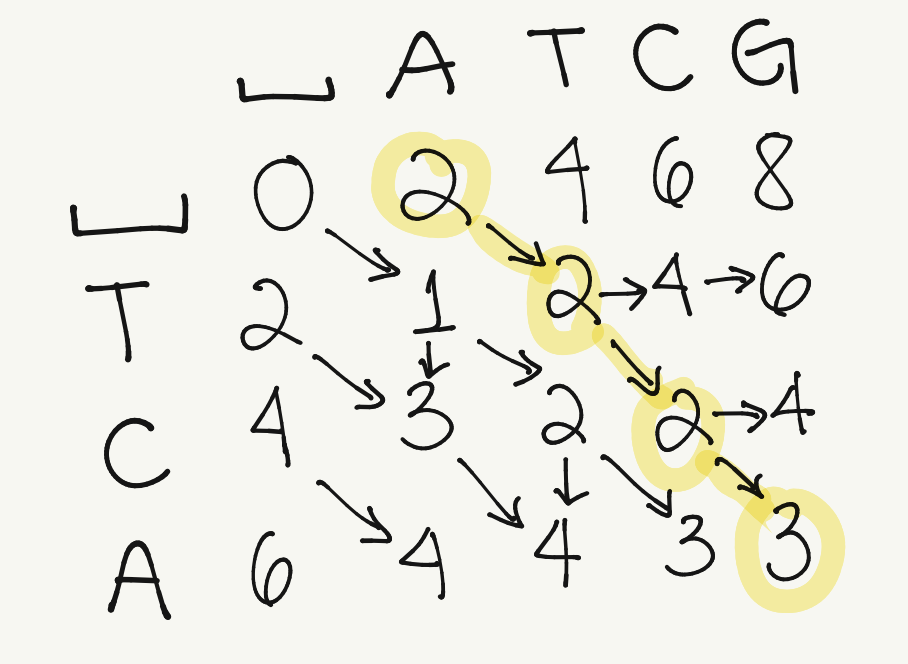 ␣ A T C G
␣ 0 2 4 6 8
T 2 1 2 → 4 → 6
C 4 3 2 2 → 4
A 6 4 4 3 3